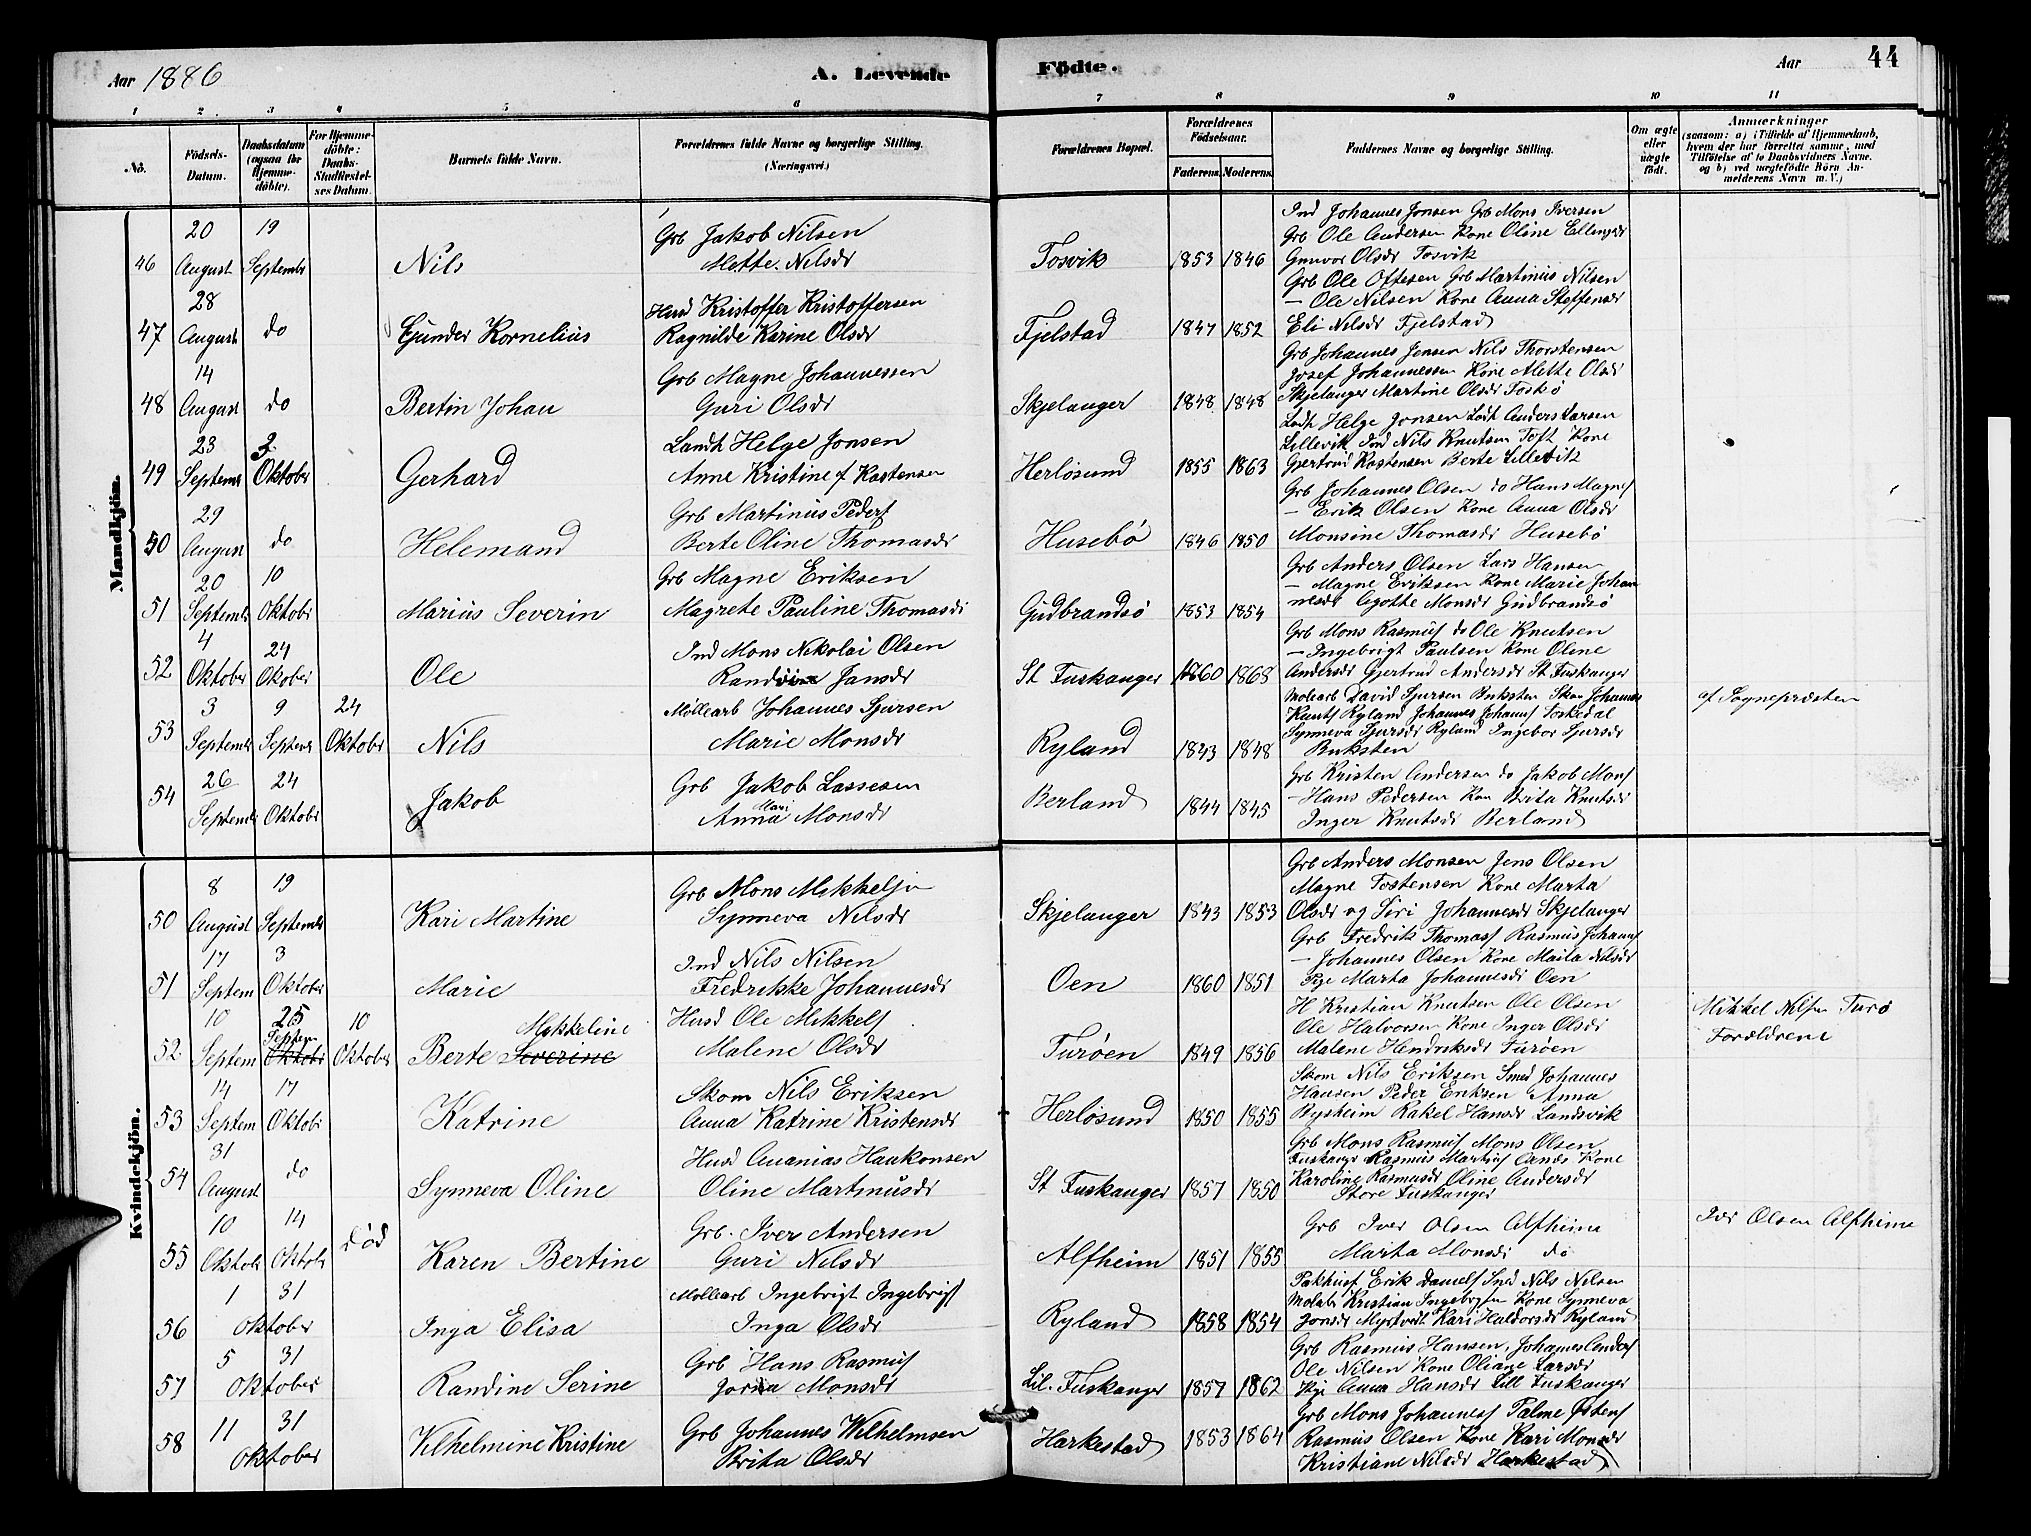 Aar 1886 A. Levende Födte. Aar 44
1 2 3 4 5 6 7 8 9 10 11
No. Födsels-Datum. Daabsdatum (ogsaa for Hjemme-döbte). For Hjemme-döbte: Daabs-Stadfæstel-ses Datum. Barnets fulde Navn. Forældrenes fulde Navne og borgerlige Stilling. (Næringsvei.) Forældrenes Bopæl. Forældrenes Födselsaar. Faderens. Moderens. Faddernes Navne og borgerlige Stilling. Om ægte eller uægte født. Anmærkninger (saasom: a) i Tilfælde af Hjemmedaab, hvem der har forrettet samme, med Tilföielse af to Daabsvidners Navne, og b) ved uægtefödte Börn An-melderens Navn m. V.)
Mandkjön.
46 20 August 19 Septembr Nils
Grb Jakob Nilsen
Mette Nilsdr
Tosvik 1853 1846
Ind Johannes Jonsen Grb Mons Iversen
Grb Ole Andersen Kone Oline Ellingsdr
Gunvor Olsdr Tosvik
47 28 August do Gunder Kornelius
Husd Kristoffer Kristoffersen
Ragnilde Karine Olsdr
Fjelstad 1847 1852
Grb Ole Oftesen Grb Martinius Nilsen
— Ole Nilsen Kone Anna Steffensdr
Eli Nilsdr Fjelstad
48 14 August do Bertin Johan
Grb Magne Johannessen
Guri Olsdr
Skjelanger 1848 1848
Grb Johannes Jensen Nils Thorstensen
Josef Johannessen Kone Mette Olsdr
Skjelanger Martine Olsdr Toskö
49 23 Septembr 3 Oktober Gerhard
Landh Helge Jonsen
Anne Kristine f Karstensen
Herlösund 1855 1863
Landh Helge Jonsen Lodt Anders Larsen
Lillevik Ind Nils Knutsen Toft Kone
Gjertrud Karstensen Berte Lillevik
50 29 August do Helemand
Grb Martinius Peders
Berte Oline Thomasdr
Husebö 1846 1850
Grb Johannes Olsen do Hans Magnes
— Erik Olsen Kone Anna Olsdr
Monsine Thomasdr Husebö
51 20 Septembr 10 Oktobr Marius Severin
Grb Magne Eriksen
Magrete Pauline Thomasdr
Gudbrandsö 1853 1854
Grb Anders Olsen Lars Hansen
— Magne Eriksen Kone Marie Johan
nesdr Agotte Monsdr Gudbrandsö
52 4 Oktober 24 Okober Ole
Ind Mons Nikolai Olsen
Randvine Jansdr
St Fuskanger 1860 1868
Grb Mons Rasmus do Ole Knutsen
— Ingebrigt Paulsen Kone Oline
Andersdr Gjertrud Andersdr St Fuskanger
53 3 Septembr 9 Septembr 24 Oktobr Nils
Möllearb Johannes Sjursen
Marie Monsdr
Ryland 1843 1848
Molearb David Sjursen Buksten Skom Johannes
Knuts Ryland Johannes Johans Foskedal
Synneva Sjursdr Ryland Ingebor Sjursdr
Buksten
af Sognepræsten
54 26 September 24 Oktober Jakob
Grb Jakob Lassesen
Anna Mari Monsdr
Berland 1844 1845
Grb Kristen Andersen do Jakob Mons
— Hans Pedersen Kone Brita Knutsdr
Inger Knutsdr Berland
Kvindekjön.
50 8 August 19 September Kari Martine
Grb Mons Mikkelsen
Synneva Nilsdr
Skjelanger 1843 1853
Grb Anders Monsen Jens Olsen
Magne Tostensen Kone Marta
Olsdr og Siri Johannesdr Skjelanger
51 17 Septem 3 Oktober Marie
Ind Nils Nilsen
Fredrikke Johannesdr
Oen 1860 1851
Grb Fredrik Thomas Rasmus Johans
— Johannes Olsen Kone Maila Nilsdr
Pige Marta Johannesdr Oen
52 10 Septem 25 Septem Oktobr 10 Oktober Berte Mikkeline Severine
Husd Ole Mikkels
Malene Olsdr
Turöen 1849 1856
H Kristian Knutsen Ole Olsen
Ole Halvorsen Kone Inger Olsdr
Malene Hendriksdr Turöen
Mikkel Nilsen Turö
Forældrene
53 14 Septem 17 Oktobr Katrine
Skom Nils Eriksen
Anna Katrine Kristensdr
Herlösund 1850 1855
Skom Nils Eriksen Smed Johannes
Hansen Peder Eriksen Anna
Rysheim Rakel Hansdr Landsvik
54 31 August do Synneva Oline
Husd Ananias Haakonsen
Oline Martinusdr
St Fuskanger 1857 1850
Grb Mons Rasmus Mons Olsen
Fuskanger Rasmus Martins Arnæs Kone
Karoline Rasmusdr Oline Andersdr
Store Fuskanger
55 10 Oktob 14 Oktob död Karen Bertine
Grb. Iver Andersen
Guri Nilsdr
Alfheim 1851 1855
Grb Iver Olsen Alfheim
Marta Monsdr do
Iver Olsen Alfheim
56 1 31 Oktober Inga Elisa
Möllearb Ingebrigt Ingebrigs
Inga Olsdr
Ryland 1858 1854
Pakhusf Erik Daniels Ind Nils Nilsen
Molabr Kristian Ingebrigtsen Kone Synneva
Jonsdr Myrtvedt Kari Haldorsdr Ryland
57 5 31 Oktober Randine Serine
Grb Hans Rasmus
Jorina Monsdr
Lil. Fuskanger 1857 1862
Grb Rasmus Hansen, Johannes Anders
Ole Nilsen Kone Oliane Larsdr
Pige Anna Hansdr Lill Fuskanger
58 11 31 Oktober Vilhelmine Kristine
Grb Johannes Wilhelmsen
Brita Olsdr
Harkestad 1853 1864
Grb Mons Johanness Palme Östens
Rasmus Olsen Kone Kari Monsdr
Kristiane Nilsdr Harkestad